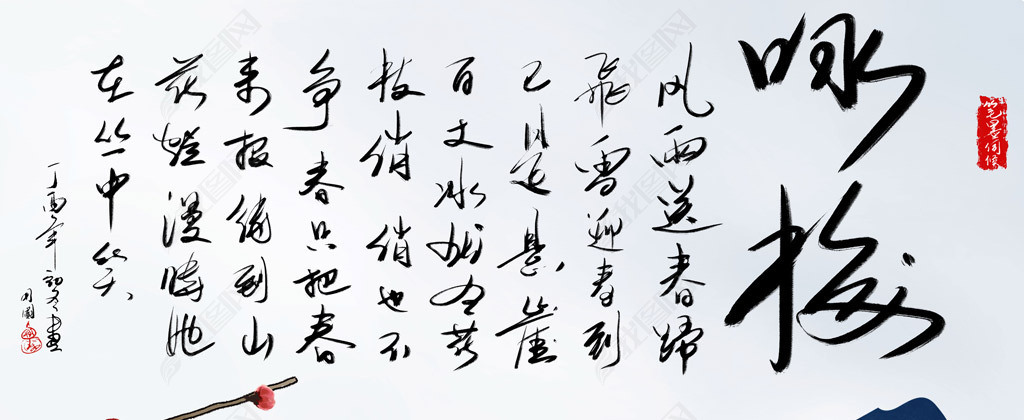 咏梅
笔墨伺候
风雨送春歸
飛雪迎春到
已是悬崖
百丈冰犹有花
枝俏 俏也不
争春只把春
来报待到山
花爛漫時她
在丛中笑
丁酉年初冬畫